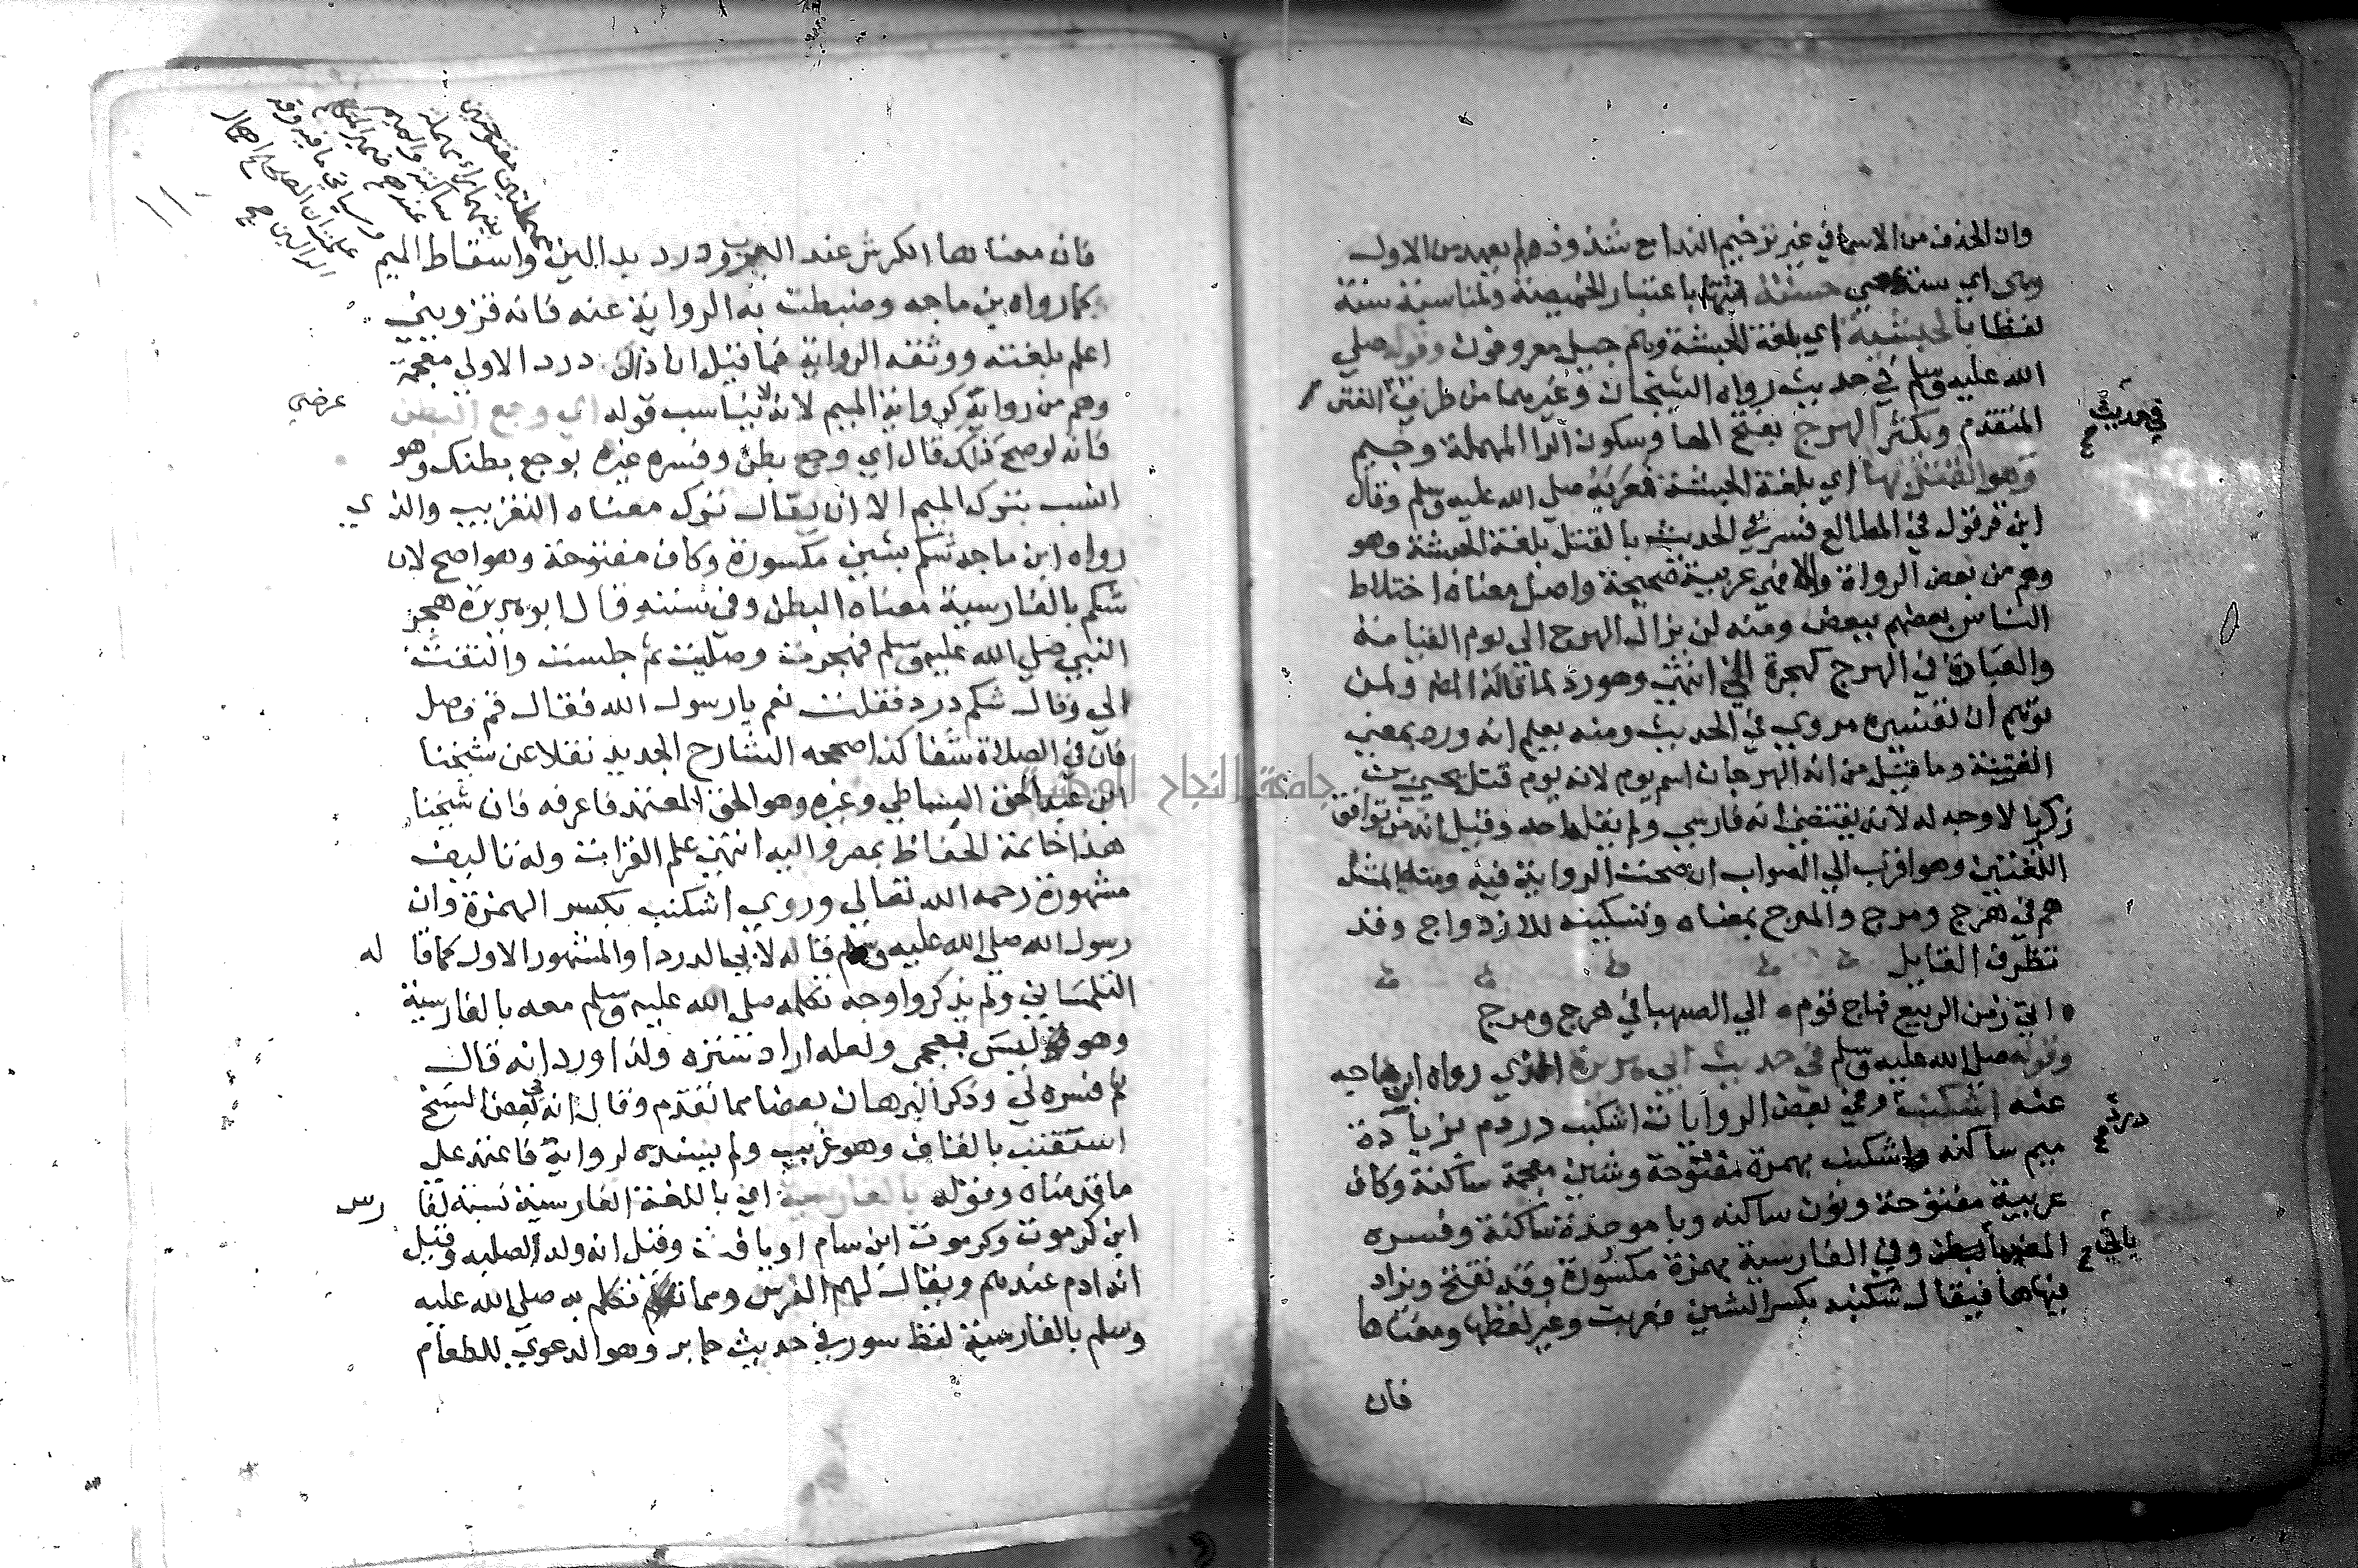 وان الحذف من الاسما في غير ترخيم الندا مع شذوذهم بعيد من الاول
وهي اي سنة حسنة باعتبار الخميصة ولمناسبة سنة
لفظا بالحبشية اي بلغة الحبشة وهم جيل معروفون وقوله صلي
الله عليه وسلم في حديث رواه الشيخان وغيرهما من طرف الفتن
في حديث
المتقدم ويكثر الهرج بفتح الها وسكون الرا المهملة وجيم
وهو القتل بها اي بلغة الحبشة فعربه صلي الله عليه وسلم وقال
ابن قرقول في المطالع فسر في الحديث بالقتل بلغة الحبشة وهو
وهم من بعض الرواة والا فهي عربية صحيحة واصل معناه اختلاط
الناس بعضهم ببعض ومنه لن يزال الهرج الي يوم القيامة
والعبادة في الهرج كهجرة الي انتهي وهو رد لما قاله المص ولمن
توهم ان تفسيره مروي في الحديث ومنه يعلم انه ورد بمعني
الفتنة وما قيل من انه الهرجان اسم يوم لانه يوم قتل يحيي بن
زكريا لا وجه له لانه يقتضي انه فارسي ولم يقله احد وقيل انه من توافق
اللغتين وهو اقرب الي الصواب ان صحت الرواية فيه ومنه المثل
هم في هرج ومرج والمرج بمعناه وتسكينه للازدواج وقد
تظرف القايل
اتي زمن الربيع فهاج قوم الي الصهبا في هرج ومرج
وقوله صلي الله عليه وسلم في حديث ابي هريرة الذي رواه ابن ماجه
عنه اشكنب وفي بعض الروايات اشكنب دردم بزيادة
درد
ميم ساكنه واشكنب بهمزة مفتوحة وشين معجمة ساكنة وكاف
عربية مفتوحة ونون ساكنه وبا موحدة ساكنة وفسره
ياتي
المص وفي الفارسية بهمزة مكسورة وقد تفتح ويزاد
فيها ها فيقال شكنبه بكسر الشين فعربت وغير لفظها ومعناها
فان
فان معناها الكرش عند العرب ودرد بدالين واسقاط الميم
كما رواه بن ماجه وضبطت به الرواية عنه فانه قزويني
اعلم بلغته ووثقه الرواية فما قيل ان ذال درد الاولي معجمة
وهم من رواية كرواية الميم لانه لا يناسب قوله اي وجع البطن
فانه لو صح ذلك قال اي وجع بطن وفسره غيره بوجع بطنك وهو
انسب بترك الميم الا ان يقال ترك معناه التقريب والذي
رواه ابن ماجه شكم بشين مكسورة وكاف مفتوحة وهو اصح لان
شكم بالفارسية معناه البطن وفي سننه قال ابو هريرة هجر
النبي صلي الله عليه وسلم فهجرت وصليت ثم جلست والتفت
الي وقال شكم درد فقلت نعم يا رسول الله فقال قم فصل
فان في الصلاة شفا كذا صححه الشارح الجديد نقلا عن شيخنا
ابن عبد الحق السنباطي وغيره وهو الحق المعتمد فاعرفه فان شيخنا
هذا خاتمة الحفاظ بمصر واليه انتهي علم القراات وله تاليف
مشهورة رحمه الله تعالي وروي اشكنب بكسر الهمزة وان
رسول الله صلي الله عليه وسلم قاله لابي الدردا والمشهور الاول كما قا له
التلمساني ولم يذكروا وجه تكلمه صلي الله عليه وسلم معه بالفارسية
وهو ليس بعجمي ولعله اراد ستره ولذا ورد انه قال
ثم فسره لي وذكر البرهان بعضا مما تقدم وقال انه في بعض النسخ
استقنب بالقاف وهو غريب ولم يسنده لرواية فاعتمد علي
ما قدمناه وقوله بالفارسية اي باللغة الفارسية نسبة لفا رس
ابن كرموت وكرموت ابن سام او يافث وقيل انه ولد الصلبه وقيل
انه ادم عندهم ويقال لهم الفرس ومما تكلم به صلي الله عليه
وسلم بالفارسية لفظ سور في حديث جابر وهو الدعوي للطعام
جامعة النجاح الوطنية